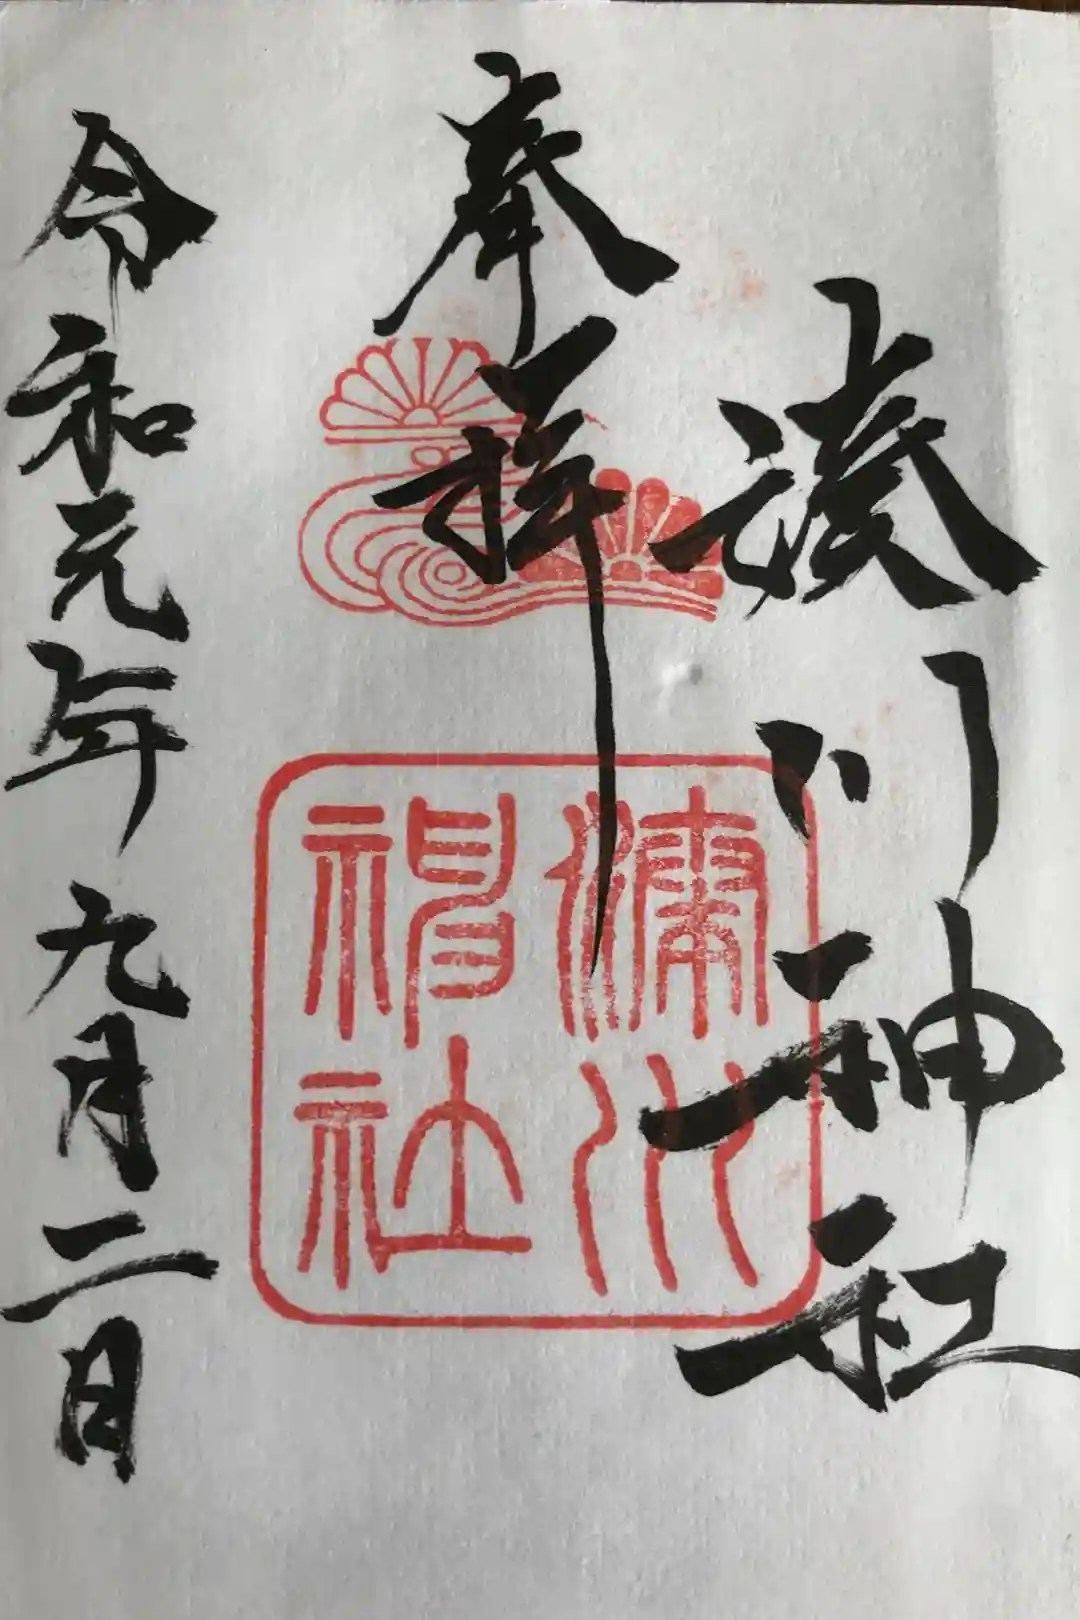 湊川神社
奉拝
湊川
神社
令和元年九月二日